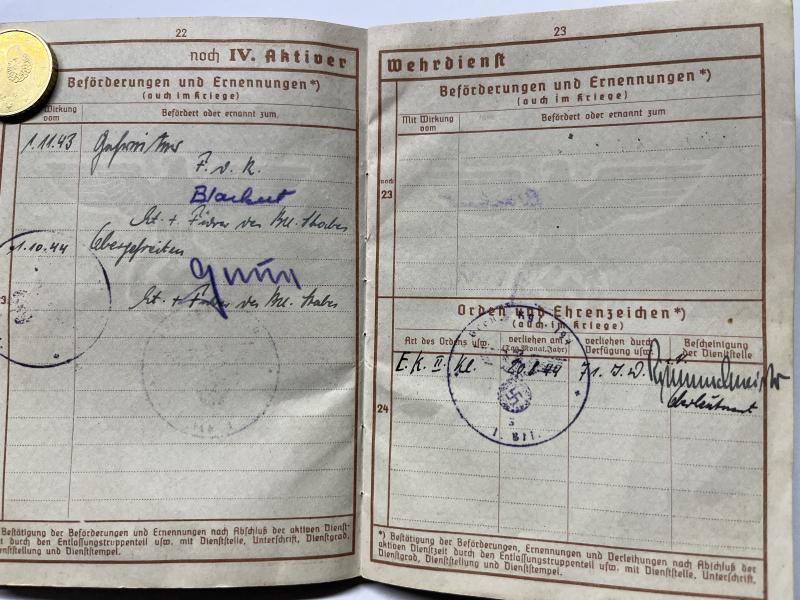 22
noch IV. Aktiver
Beförderungen und Ernennungen*)
(auch im Kriege)
Wirkung
vom
Befördert oder ernannt zum
1.11.43 Gefreiter
F. d. R.
Lt. + Führer des Btl. Stabes
1.10.44 Obergefreiten
Lt. + Führer des Btl. Stabes
Bestätigung der Beförderungen und Ernennungen nach Abschluß der aktiven Dienst-
durch den Entlassungstruppenteil usw. mit Dienststelle, Unterschrift, Dienstgrad,
Dienststellung und Dienststempel.
23
Wehrdienst
Beförderungen und Ernennungen*)
(auch im Kriege)
Mit Wirkung
vom
Befördert oder ernannt zum
noch
23
Orden und Ehrenzeichen*)
(auch im Kriege)
Art des Ordens usw.
verliehen am
(Tag, Monat, Jahr)
verliehen durch
Verfügung usw.
Bescheinigung
der Dienststelle
E.K. II. Kl. 44 71. I.D.
Oberleutnant
24
*) Bestätigung der Beförderungen, Ernennungen und Verleihungen nach Abschluß der
aktiven Dienstzeit durch den Entlassungstruppenteil usw. mit Dienststelle, Unterschrift,
Dienstgrad, Dienststellung und Dienststempel.